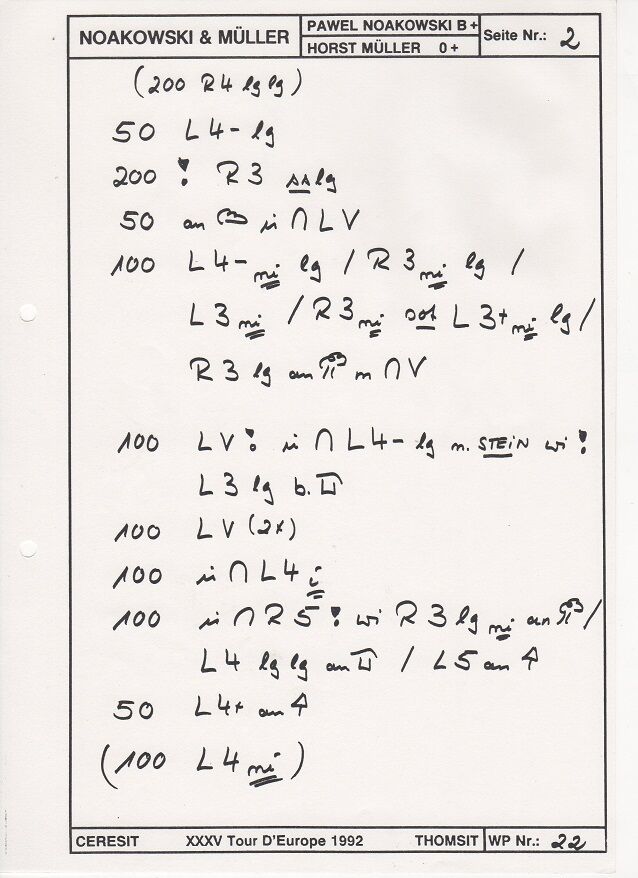 NOAKOWSKI & MÜLLER
PAWEL NOAKOWSKI B+
HORST MÜLLER 0+
Seite Nr.: 2
(200 R4 lg lg)
50 L4- lg
200 ! R3 salg
50 an in ∩ L V
100 L4- ni lg / R3 ni lg /
L3 ni / R3 ni sot L3+ ni lg /
R3 lg an m ∩ V
100 LV! in ∩ L4- lg n. STEIN wi !
L3 lg b.
100 LV (2x)
100 in ∩ L4 i
100 in ∩ R5 ! wi R3 lg ni an /
L4 lg lg an / L5 an
50 L4+ an
(100 L4 ni)
CERESIT XXXV Tour D'Europe 1992 THOMSIT WP Nr.: 22